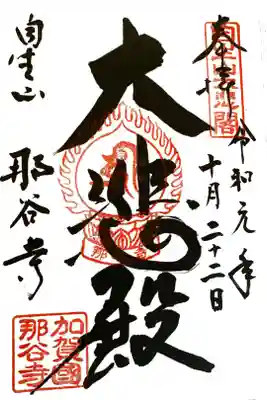 奉拝
令和元年
十月二十二日
大悲殿
自生山
那谷寺
加賀國
那谷寺